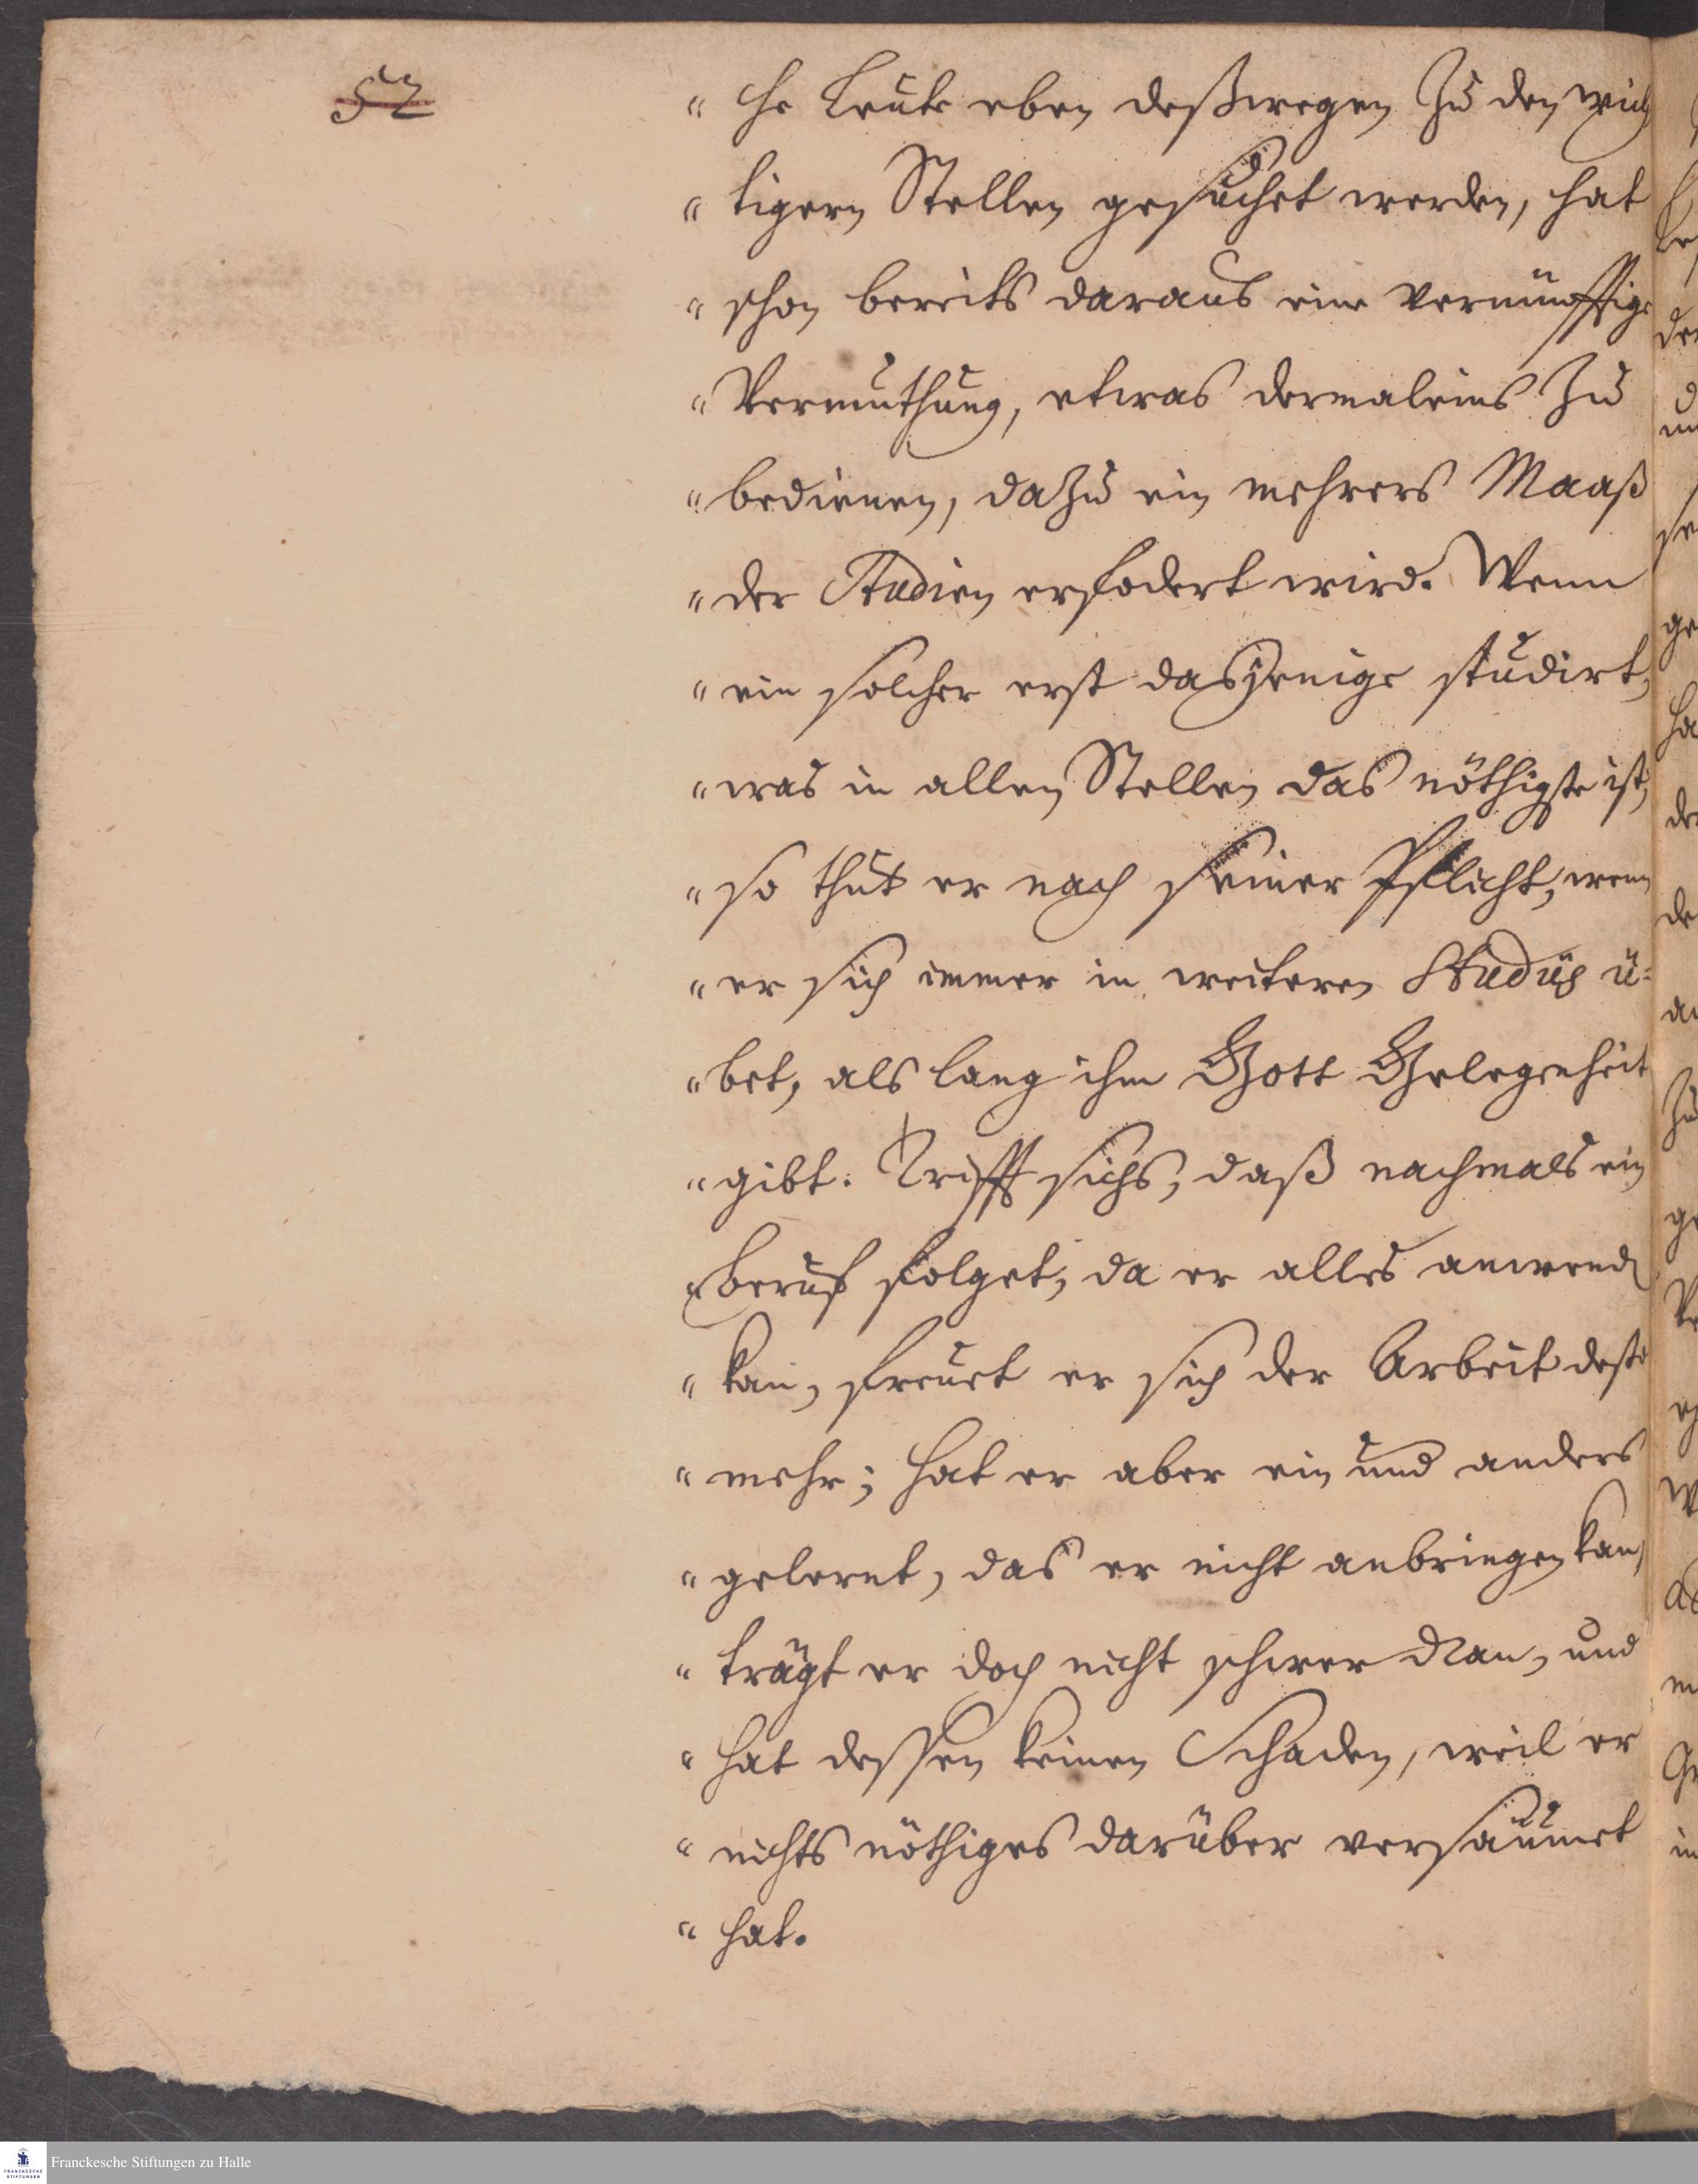 52
" che Leute eben deßwegen zu den wich
" tigern Stellen gesuchet werden, hat
" schon bereits daraus eine vernünfftige
" Vermuthung, etwas dermaleins zu
" bedienen, dazu ein mehrers Maaß
" der Studien erfodert wird. Wenn
" ein solcher erst dasjenige studirt,
" was in allen Stellen das nöthigste ist,
" so thut er nach seiner Pflicht, wenn
" er sich immer in weiteren Studiis ü-
" bet, als lang ihm Gott Gelegenheit
" gibt. Trifft sichs, daß nachmals ein
" Beruf folget, da er alles anwenden
" kan, freuet er sich der Arbeit desto
" mehr; hat er aber ein und anders
" gelernt, das er nicht anbringen kan,
" trägt er doch nicht schwer dran, und
" hat dessen keinen Schaden, weil er
" nichts nöthiges darüber versäumet
" hat.
Franckesche Stiftungen zu Halle